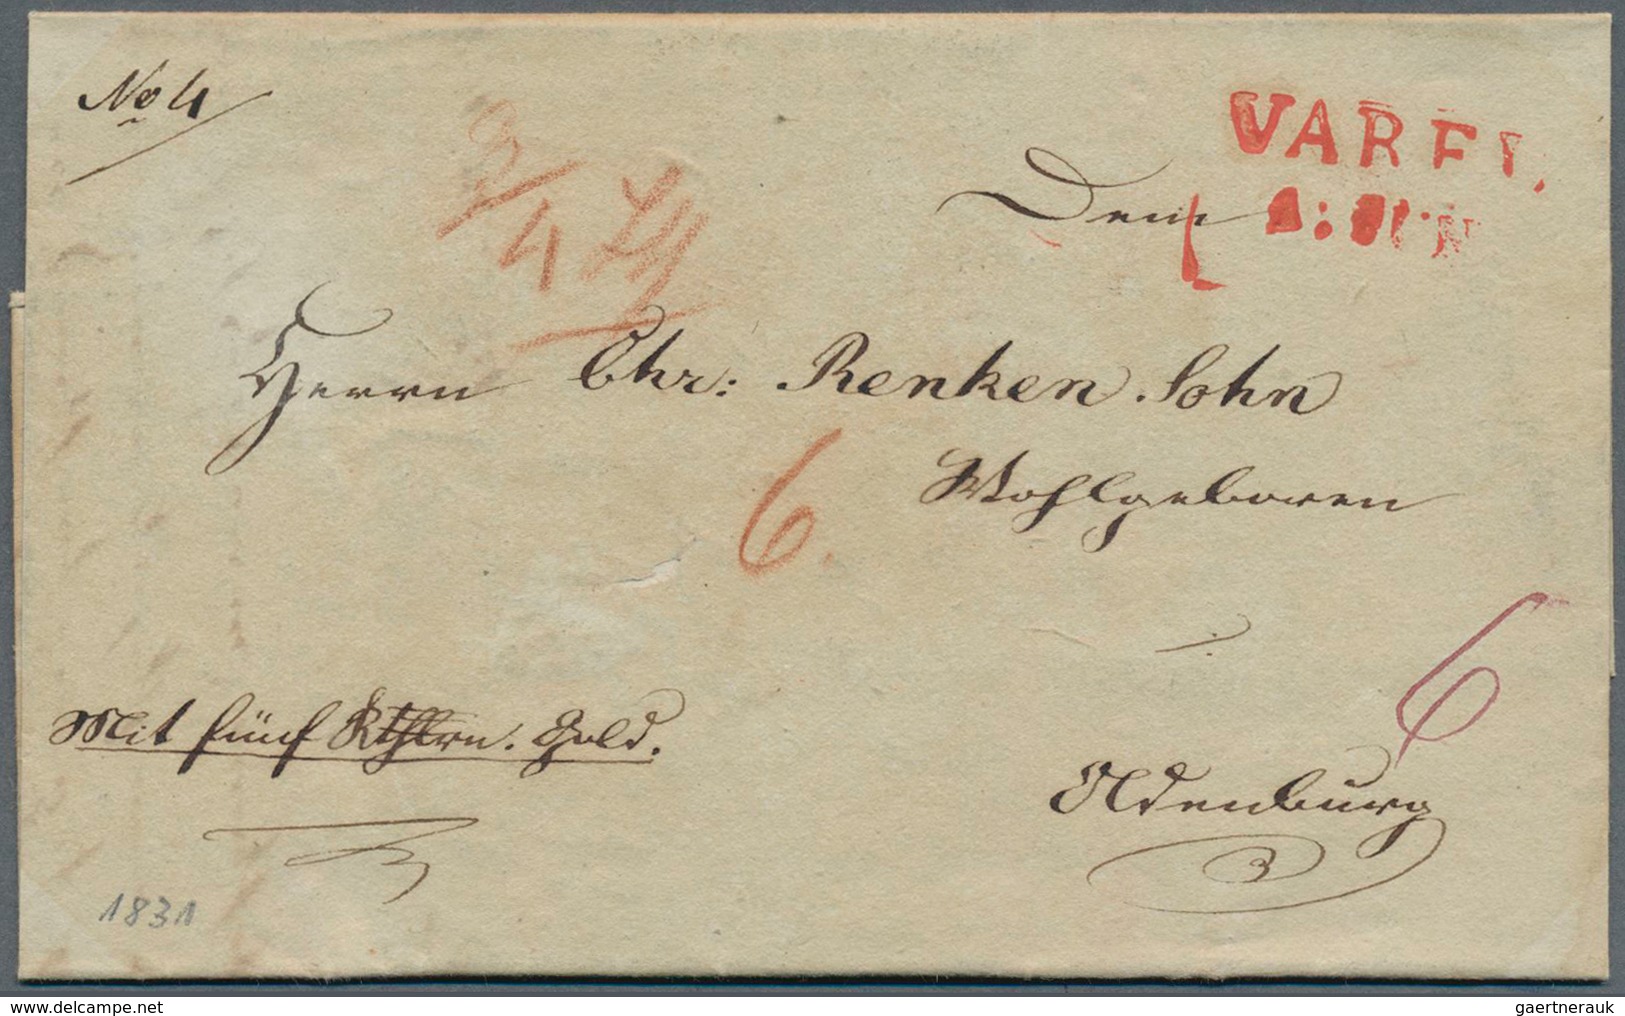 No 4
VAREL.
Dem
Herrn Chr: Renken Sohn
6.
Wohlgeboren
6
Mit fünf Rthlrn. Gold.
Oldenburg
1831
www.delcampe.net
gaertnerauk